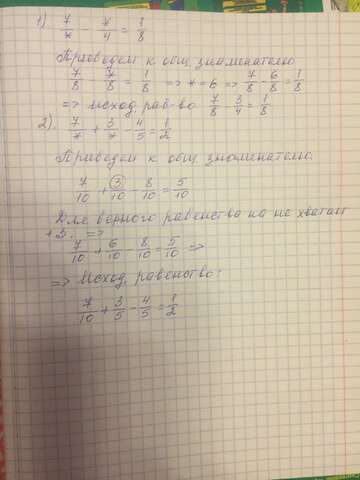 1) 7/* - */4 = 1/8
Приводем к общ знаменателю
7/8 - */8 = 1/8 => * = 6 => 7/8 - 6/8 = 1/8
=> исход, рав-во 7/8 - 3/4 = 1/8
2). 7/* + 3/* - 4/5 = 1/2
Приводем к общ знаменателю.
7/10 + 3/10 - 8/10 = 5/10
Для верного равенства на не хватает
+3. =>
7/10 + 6/10 - 8/10 = 5/10 =>
=> Исход, равенство:
7/10 + 3/5 - 4/5 = 1/2